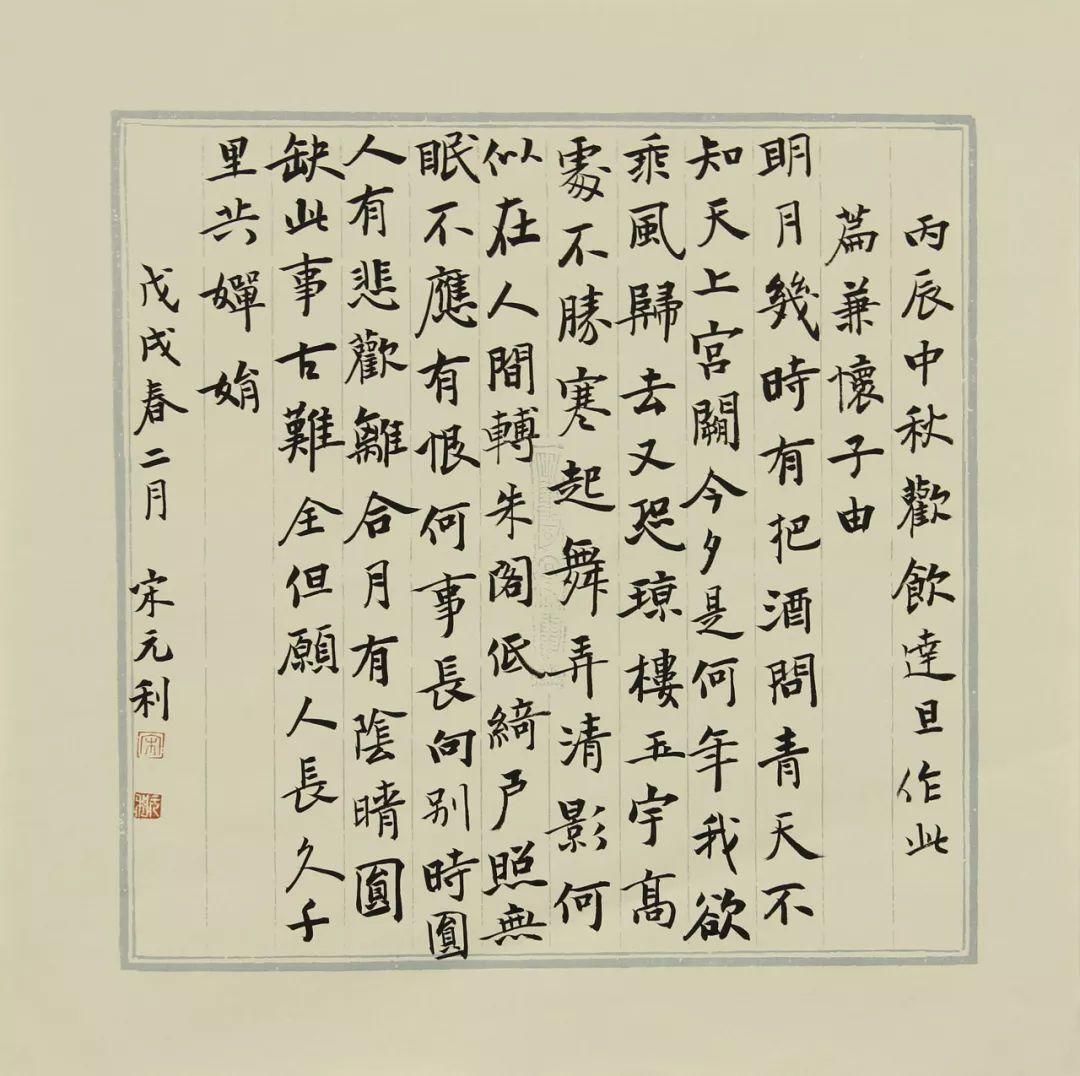 丙辰中秋歡飲達旦作此
篇兼懷子由
明月幾時有把酒問青天不
知天上宮闕今夕是何年我欲
乘風歸去又恐琼樓玉宇高
處不勝寒起舞弄清影何
似在人間轉朱閣低綺戶照無
眠不應有恨何事長向別時圓
人有悲歡離合月有陰晴圓
缺此事古難全但願人長久千
里共嬋娟
戊戌春二月 宋元利
宋